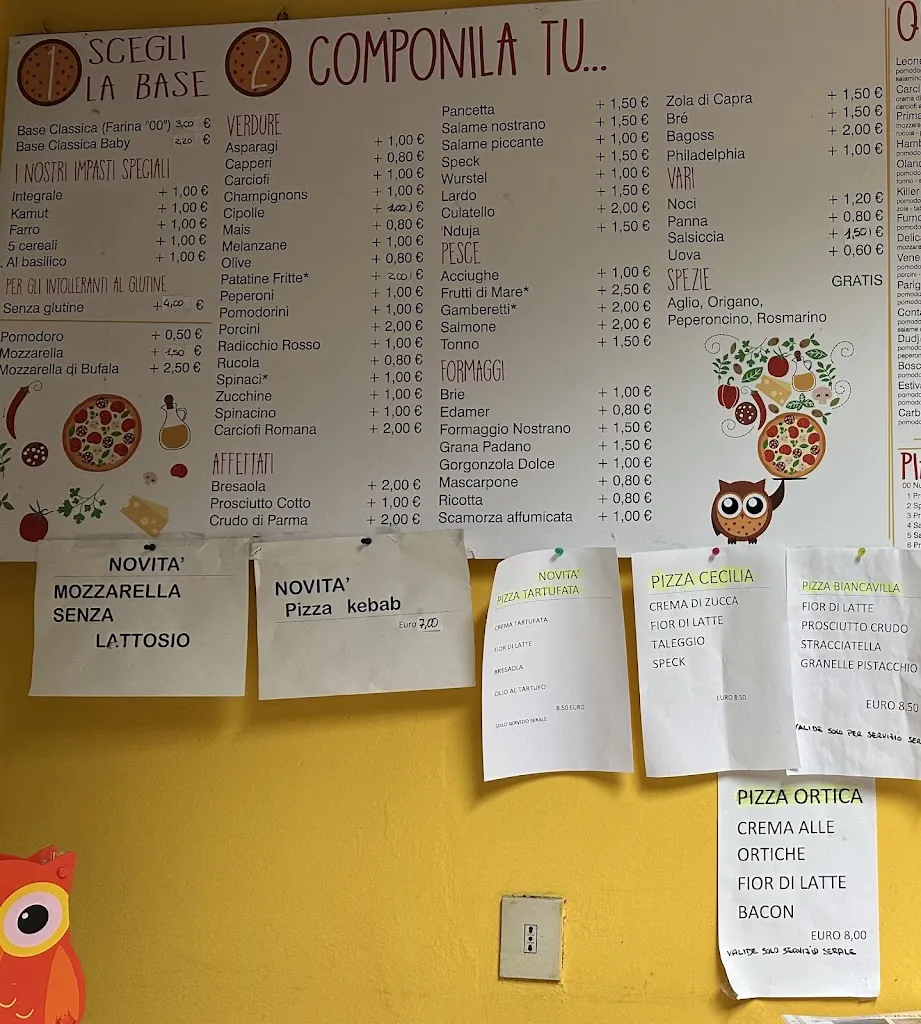 1 SCEGLI
LA BASE
Base Classica (Farina "00") 3,00 €
Base Classica Baby 2,20 €
I NOSTRI IMPASTI SPECIALI
Integrale + 1,00 €
Kamut + 1,00 €
Farro + 1,00 €
5 cereali + 1,00 €
Al basilico + 1,00 €
PER GLI INTOLLERANTI AL GLUTINE
Senza glutine + 4,00 €
Pomodoro + 0,50 €
Mozzarella + 1,50 €
Mozzarella di Bufala + 2,50 €
2 COMPONILA TU...
VERDURE
Asparagi + 1,00 €
Capperi + 0,80 €
Carciofi + 1,00 €
Champignons + 1,00 €
Cipolle + 1,00 €
Mais + 0,80 €
Melanzane + 1,00 €
Olive + 0,80 €
Patatine Fritte* + 2,00 €
Peperoni + 1,00 €
Pomodorini + 1,00 €
Porcini + 2,00 €
Radicchio Rosso + 1,00 €
Rucola + 0,80 €
Spinaci* + 1,00 €
Zucchine + 1,00 €
Spinacino + 1,00 €
Carciofi Romana + 2,00 €
AFFETTATI
Bresaola + 2,00 €
Prosciutto Cotto + 1,00 €
Crudo di Parma + 2,00 €
Pancetta + 1,50 €
Salame nostrano + 1,50 €
Salame piccante + 1,00 €
Speck + 1,50 €
Wurstel + 1,00 €
Lardo + 1,50 €
Culatello + 2,00 €
'Nduja + 1,50 €
PESCE
Acciughe + 1,00 €
Frutti di Mare* + 2,50 €
Gamberetti* + 2,00 €
Salmone + 2,00 €
Tonno + 1,50 €
FORMAGGI
Brie + 1,00 €
Edamer + 0,80 €
Formaggio Nostrano + 1,50 €
Grana Padano + 1,50 €
Gorgonzola Dolce + 1,00 €
Mascarpone + 0,80 €
Ricotta + 0,80 €
Scamorza affumicata + 1,00 €
Zola di Capra + 1,50 €
Bré + 1,50 €
Bagoss + 2,00 €
Philadelphia + 1,00 €
VARI
Noci + 1,20 €
Panna + 0,80 €
Salsiccia + 1,50 €
Uova + 0,60 €
SPEZIE GRATIS
Aglio, Origano,
Peperoncino, Rosmarino
NOVITA'
MOZZARELLA
SENZA
LATTOSIO
NOVITA'
Pizza kebab
Euro 7,00
NOVITA'
PIZZA TARTUFATA
CREMA TARTUFATA
FIOR DI LATTE
BRESAOLA
OLIO AL TARTUFO
8.50 EURO
SOLO SERVIZIO SERALE
PIZZA CECILIA
CREMA DI ZUCCA
FIOR DI LATTE
TALEGGIO
SPECK
EURO 8.50
PIZZA BIANCAVILLA
FIOR DI LATTE
PROSCIUTTO CRUDO
STRACCIATELLA
GRANELLE PISTACCHIO
EURO 8.50
VALIDE SOLO PER SERVIZIO SER
PIZZA ORTICA
CREMA ALLE
ORTICHE
FIOR DI LATTE
BACON
EURO 8,00
VALIDE SOLO SERVIZIO SERALE